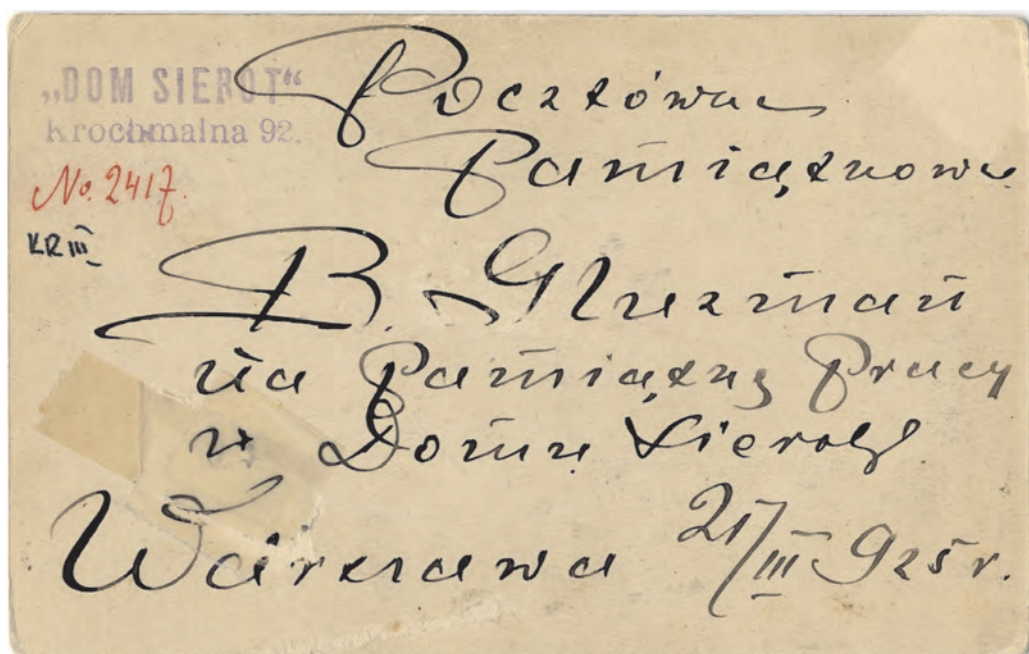 „DOM SIEROT“
Krochmalna 92.
No. 2417.
KR III
Pocztówka
Pamiątkowa
B. Gluzman
na Pamiątkę Pracy
w Domu Sierot
Warszawa 21/III 925 r.